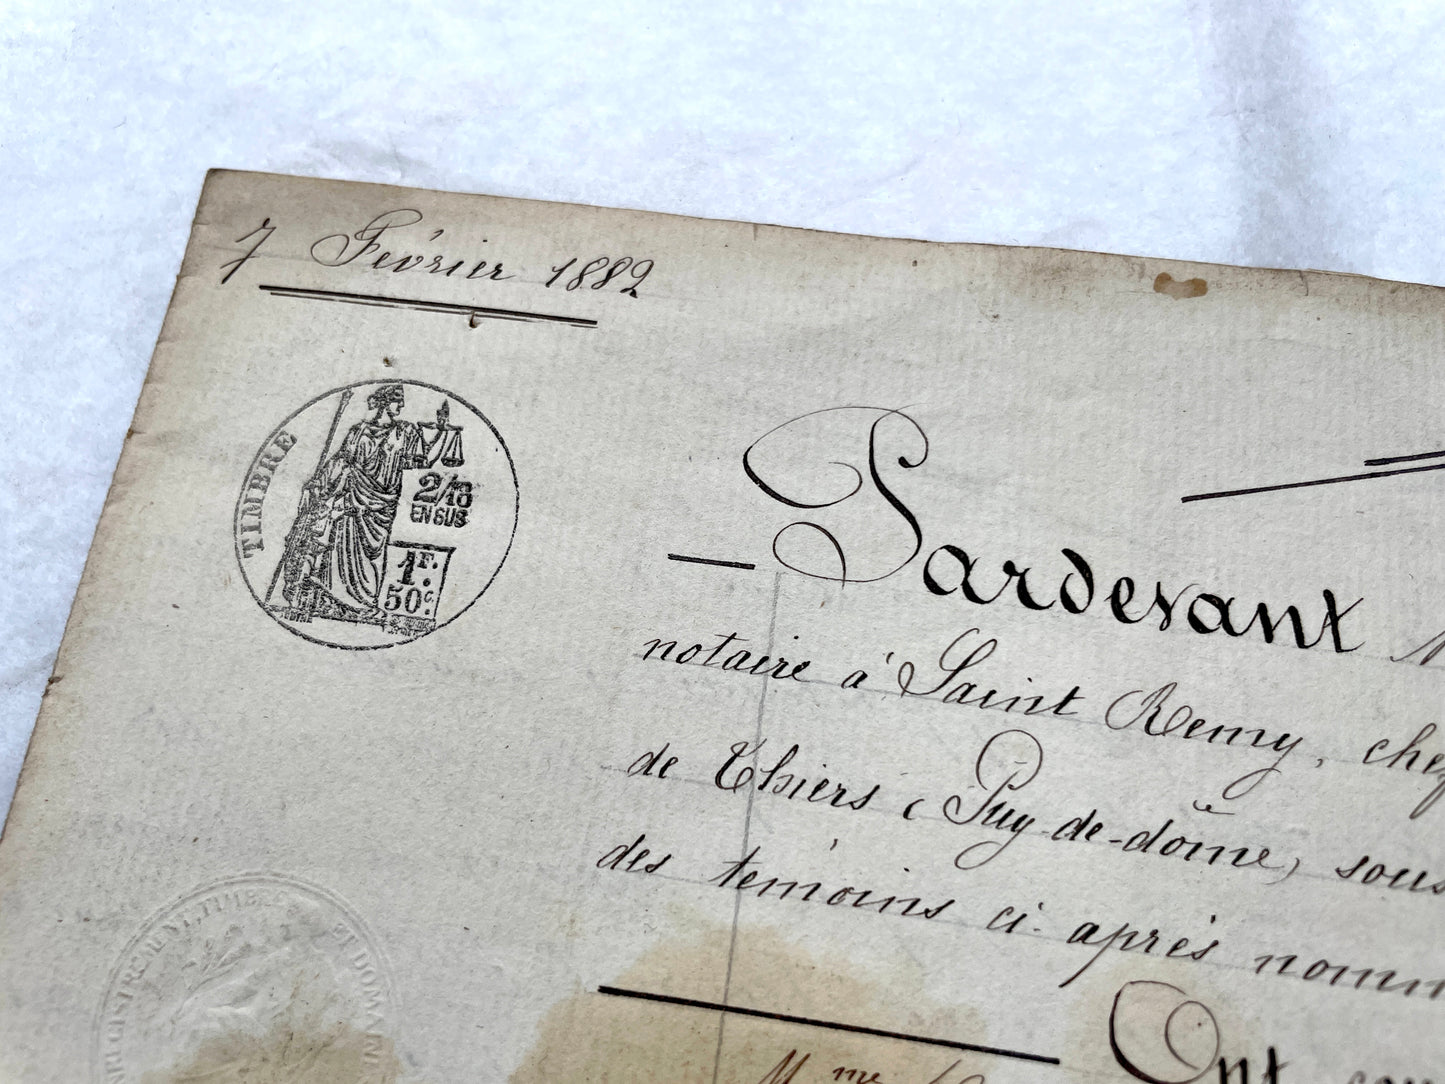 7 Février 1882
TIMBRE
2/10
EN SUS
1F.
50c.
Pardevant
notaire à Saint Remy, chef
de Thiers (Puy-de-dôme) sous
des témoins ci-après nomm
ENREGISTREMENT, TIMBRE ET DOMAINE
Ont
Mme